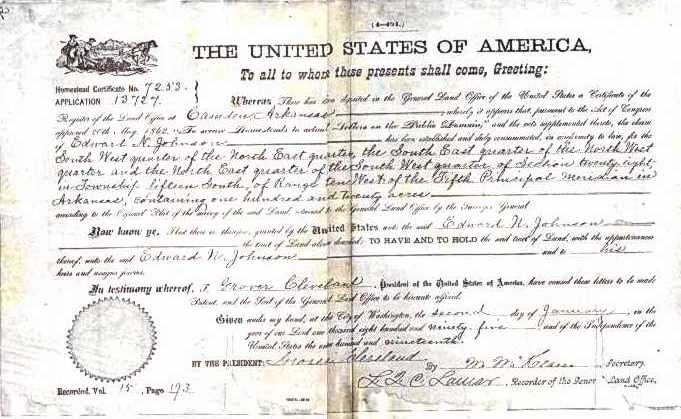 (4-404.)
THE UNITED STATES OF AMERICA,
To all to whom these presents shall come, Greeting:
Homestead Certificate No. 7253.
APPLICATION 13727.
Whereas, There has been deposited in the General Land Office of the United States a Certificate of the
Register of the Land Office at Camden Arkansas whereby it appears that, pursuant to the Act of Congress
approved 20th May, 1862, "To secure Homesteads to actual Settlers on the Public Domain," and the acts supplemental thereto, the claim
of Edward N. Johnson has been established and duly consummated, in conformity to law, for the
South West quarter of the North East quarter, the South East quarter of the North West
quarter and the North East quarter of the South West quarter of Section twenty eight,
in Township fifteen South, of Range ten West of the Fifth Principal Meridian in
Arkansas, containing one hundred and twenty acres
according to the Official Plat of the survey of the said Land, returned to the General Land Office by the Surveyor General
Now know ye, That there is, therefore, granted by the United States unto the said Edward N. Johnson
the tract of Land above described; TO HAVE AND TO HOLD the said tract of Land, with the appurtenances
thereof, unto the said Edward N. Johnson and to his
heirs and assigns forever.
In testimony whereof, I, Grover Cleveland President of the United States of America, have caused these letters to be made
Patent, and the Seal of the General Land Office to be hereunto affixed.
Given under my hand, at the City of Washington, the second day of January, in the
year of our Lord one thousand eight hundred and ninety five, and of the Independence of the
United States the one hundred and nineteenth
BY THE PRESIDENT: Grover Cleveland
By M. McKean Secretary.
L. Q. C. Lamar, Recorder of the General Land Office.
Recorded, Vol. 15, Page 193